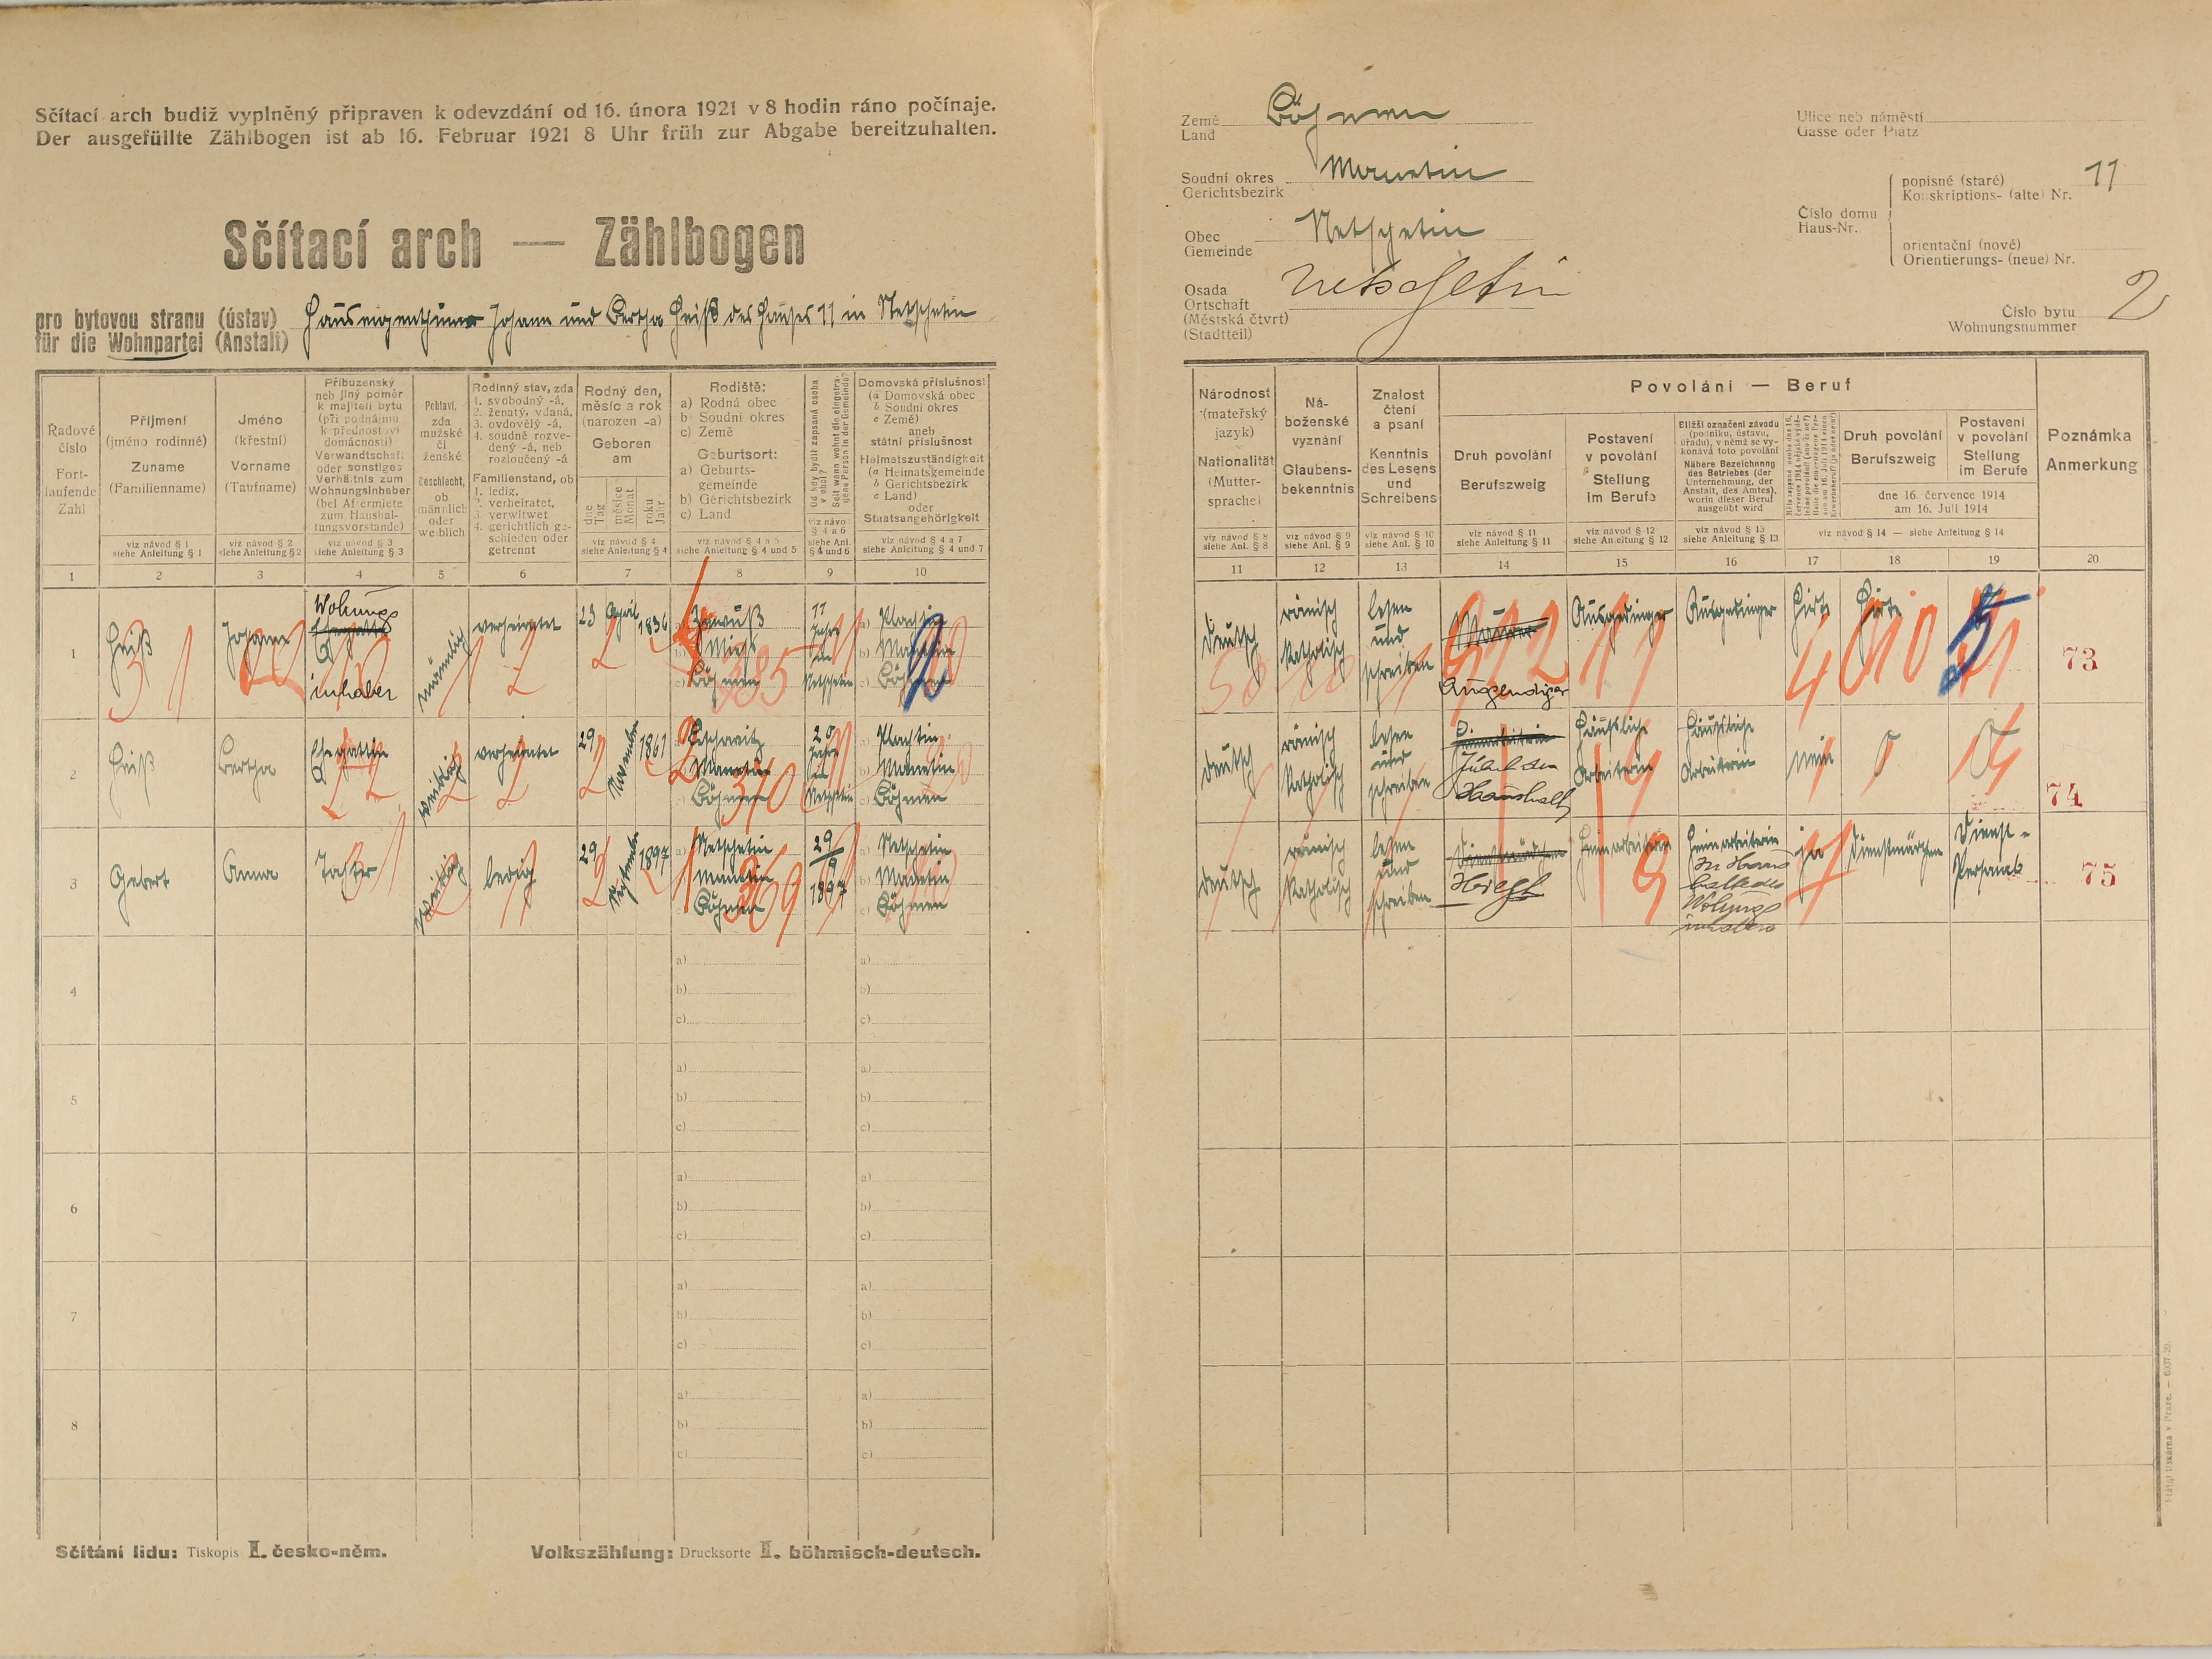 Sčítací arch budiž vyplněný připraven k odevzdání od 16. února 1921 v 8 hodin ráno počínaje.
Der ausgefüllte Zählbogen ist ab 16. Februar 1921 8 Uhr früh zur Abgabe bereitzuhalten.
Sčítací arch — Zählbogen
pro bytovou stranu (ústav)
für die Wohnpartei (Anstalt)
Hauseigenthümer Johann und Bertha Heiß des Hauses 11 in Netschetin
Země
Land
Böhmen
Soudní okres
Gerichtsbezirk
Manetin
Obec
Gemeinde
Netschetin
Osada
Ortschaft
(Městská čtvrt)
(Stadtteil)
Netschetin
Ulice neb náměstí
Gasse oder Platz
Číslo domu
Haus-Nr.
popisné (staré)
Konskriptions- (alte) Nr.
11
orientační (nové)
Orientierungs- (neue) Nr.
Číslo bytu
Wohnungsnummer
2
Řadové
číslo
Fort-
laufende
Zahl
Příjmení
(jméno rodinné)
Zuname
(Familienname)
viz návod § 1
siehe Anleitung § 1
Jméno
(křestní)
Vorname
(Taufname)
viz návod § 2
siehe Anleitung § 2
Příbuzenský
neb jiný poměr
k majiteli bytu
(při podnájmu
k přednostovi
domácnosti)
Verwandtschaft
oder sonstiges
Verhältnis zum
Wohnungsinhaber
(bei Aftermiete
zum Haushal-
tungsvorstande)
viz návod § 3
siehe Anleitung § 3
Pohlaví,
zda
mužské
či
ženské
Geschlecht,
ob
männlich
oder
weiblich
Rodinný stav, zda
1. svobodný -á,
2. ženatý, vdaná,
3. ovdovělý -á,
4. soudně rozve-
dený -á, neb
rozloučený -á
Familienstand, ob
1. ledig,
2. verheiratet,
3. verwitwet
4. gerichtlich ge-
schieden oder
getrennt
Rodný den,
měsíc a rok
(narozen -a)
Geboren
am
dne
Tag
měsíce
Monat
roku
Jahr
viz návod § 4
siehe Anleitung § 4
Rodiště:
a) Rodná obec
b) Soudní okres
c) Země
Geburtsort:
a) Geburts-
gemeinde
b) Gerichtsbezirk
c) Land
viz návod § 4 a 5
siehe Anleitung § 4 und 5
Od kdy bydlí zapsaná osoba
v obci?
Seit wann wohnt die eingetra-
gene Person in der Gemeinde?
viz návod
§ 4 a 6
siehe Anl.
§ 4 und 6
Domovská příslušnost
(a Domovská obec
b Soudní okres
c Země)
aneb
státní příslušnost
Heimatszuständigkeit
(a Heimatsgemeinde
b Gerichtsbezirk
c Land)
oder
Staatsangehörigkeit
viz návod § 4 a 7
siehe Anleitung § 4 und 7
Národnost
(mateřský
jazyk)
Nationalität
(Mutter-
sprache)
viz návod § 8
siehe Anl. § 8
Ná-
boženské
vyznání
Glaubens-
bekenntnis
viz návod § 9
siehe Anl. § 9
Znalost
čtení
a psaní
Kenntnis
des Lesens
und
Schreibens
viz návod § 10
siehe Anl. § 10
Povolání — Beruf
Druh povolání
Berufszweig
viz návod § 11
siehe Anleitung § 11
Postavení
v povolání
Stellung
im Berufe
viz návod § 12
siehe Anleitung § 12
Bližší označení závodu
(podniku, ústavu,
úřadu), v němž se vy-
konává toto povolání
Nähere Bezeichnung
des Betriebes (der
Unternehmung, der
Anstalt, des Amtes),
worin dieser Beruf
ausgeübt wird
viz návod § 13
siehe Anleitung § 13
Druh povolání
Berufszweig
Postavení
v povolání
Stellung
im Berufe
dne 16. července 1914
am 16. Juli 1914
viz návod § 14 — siehe Anleitung § 14
Poznámka
Anmerkung
1 2 3 4 5 6 7 8 9 10 11 12 13 14 15 16 17 18 19 20
1
Heiß
Johann
Wohnungs
inhaber
männlich
verheiratet
23 April 1836
Mies
Böhmen
11
Jahre
in
Netschetin
a) Plachtin
b) Manetin
c) Böhmen
385
deutsch
römisch
katholisch
lesen
und
schreiben
Ausgedinger
Ausgedinger
73
2
Heiß
Bertha
Ehegattin
weiblich
verheiratet
29 November 1861
Manetin
Böhmen
20
Jahre
in
Netschetin
a) Plachtin
b) Manetin
c) Böhmen
deutsch
römisch
katholisch
lesen
und
schreiben
Haushalt
Häusliche
Arbeiterin
Häusliche
Arbeiterin
nein
74
3
Gebert
Anna
weiblich
ledig
29 September 1897
a) Netschetin
b) Manetin
c) Böhmen
369
29
9
1897
a) Netschetin
b) Manetin
c) Böhmen
deutsch
römisch
katholisch
lesen
und
schreiben
Heimarbeiterin
Heimarbeiterin
ja
Dienstmädchen
Dienst-
Personal
75
4
a)
b)
c)
a)
b)
c)
5
a)
b)
c)
a)
b)
c)
6
a)
b)
c)
a)
b)
c)
7
a)
b)
c)
a)
b)
c)
8
a)
b)
c)
a)
b)
c)
Sčítání lidu: Tiskopis II. česko-něm.
Volkszählung: Drucksorte II. böhmisch-deutsch.